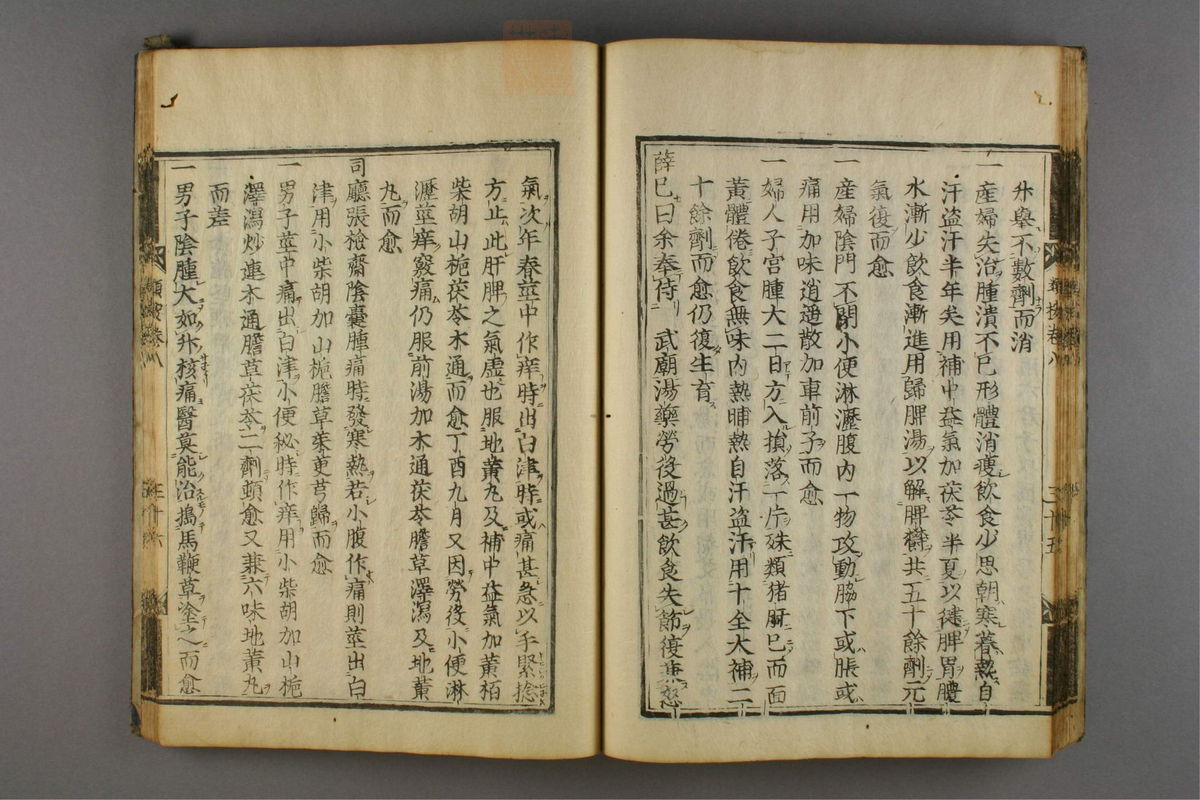 升舉不數劑而消
一產婦失治腫潰不已形體消瘦飲食少思朝寒暮熱自
汗盜汗半年矣用補中益氣加茯苓半夏以健脾胃膿
水漸少飲食漸進用歸脾湯以解脾鬱共五十餘劑元
氣復而愈
一產婦陰門不閉小便淋瀝腹內一物攻動脇下或脹或
痛用加味逍遙散加車前子而愈
一婦人子宮腫大二日方入損落一片殊類猪肝已而面
黃體倦飲食無味內熱晡熱自汗盜汗用十全大補二
十餘劑而愈仍復生育
薛已曰余奉侍 武廟湯藥勞役過甚飲食失節復兼怒
氣次年春莖中作痒時出白津時或痛甚急以手緊捻
方止此肝脾之氣虛也服地黃丸及補中益氣加黃栢
柴胡山梔茯苓木通而愈丁酉九月又因勞役小便淋
瀝莖痒竅痛仍服前湯加木通茯苓膽草澤瀉及地黃
丸而愈
司廳張檢齋陰囊腫痛時發寒熱若小腹作痛則莖出白
津用小柴胡加山梔膽草茱萸芎歸而愈
一男子莖中痛出白津小便秘時作痒用小柴胡加山梔
澤瀉炒連木通膽草茯苓二劑頓愈又兼六味地黃丸
而差
一男子陰腫大如升核痛醫莫能治搗馬鞭草塗之而愈
類按卷八
二十五
類按卷八
二十六